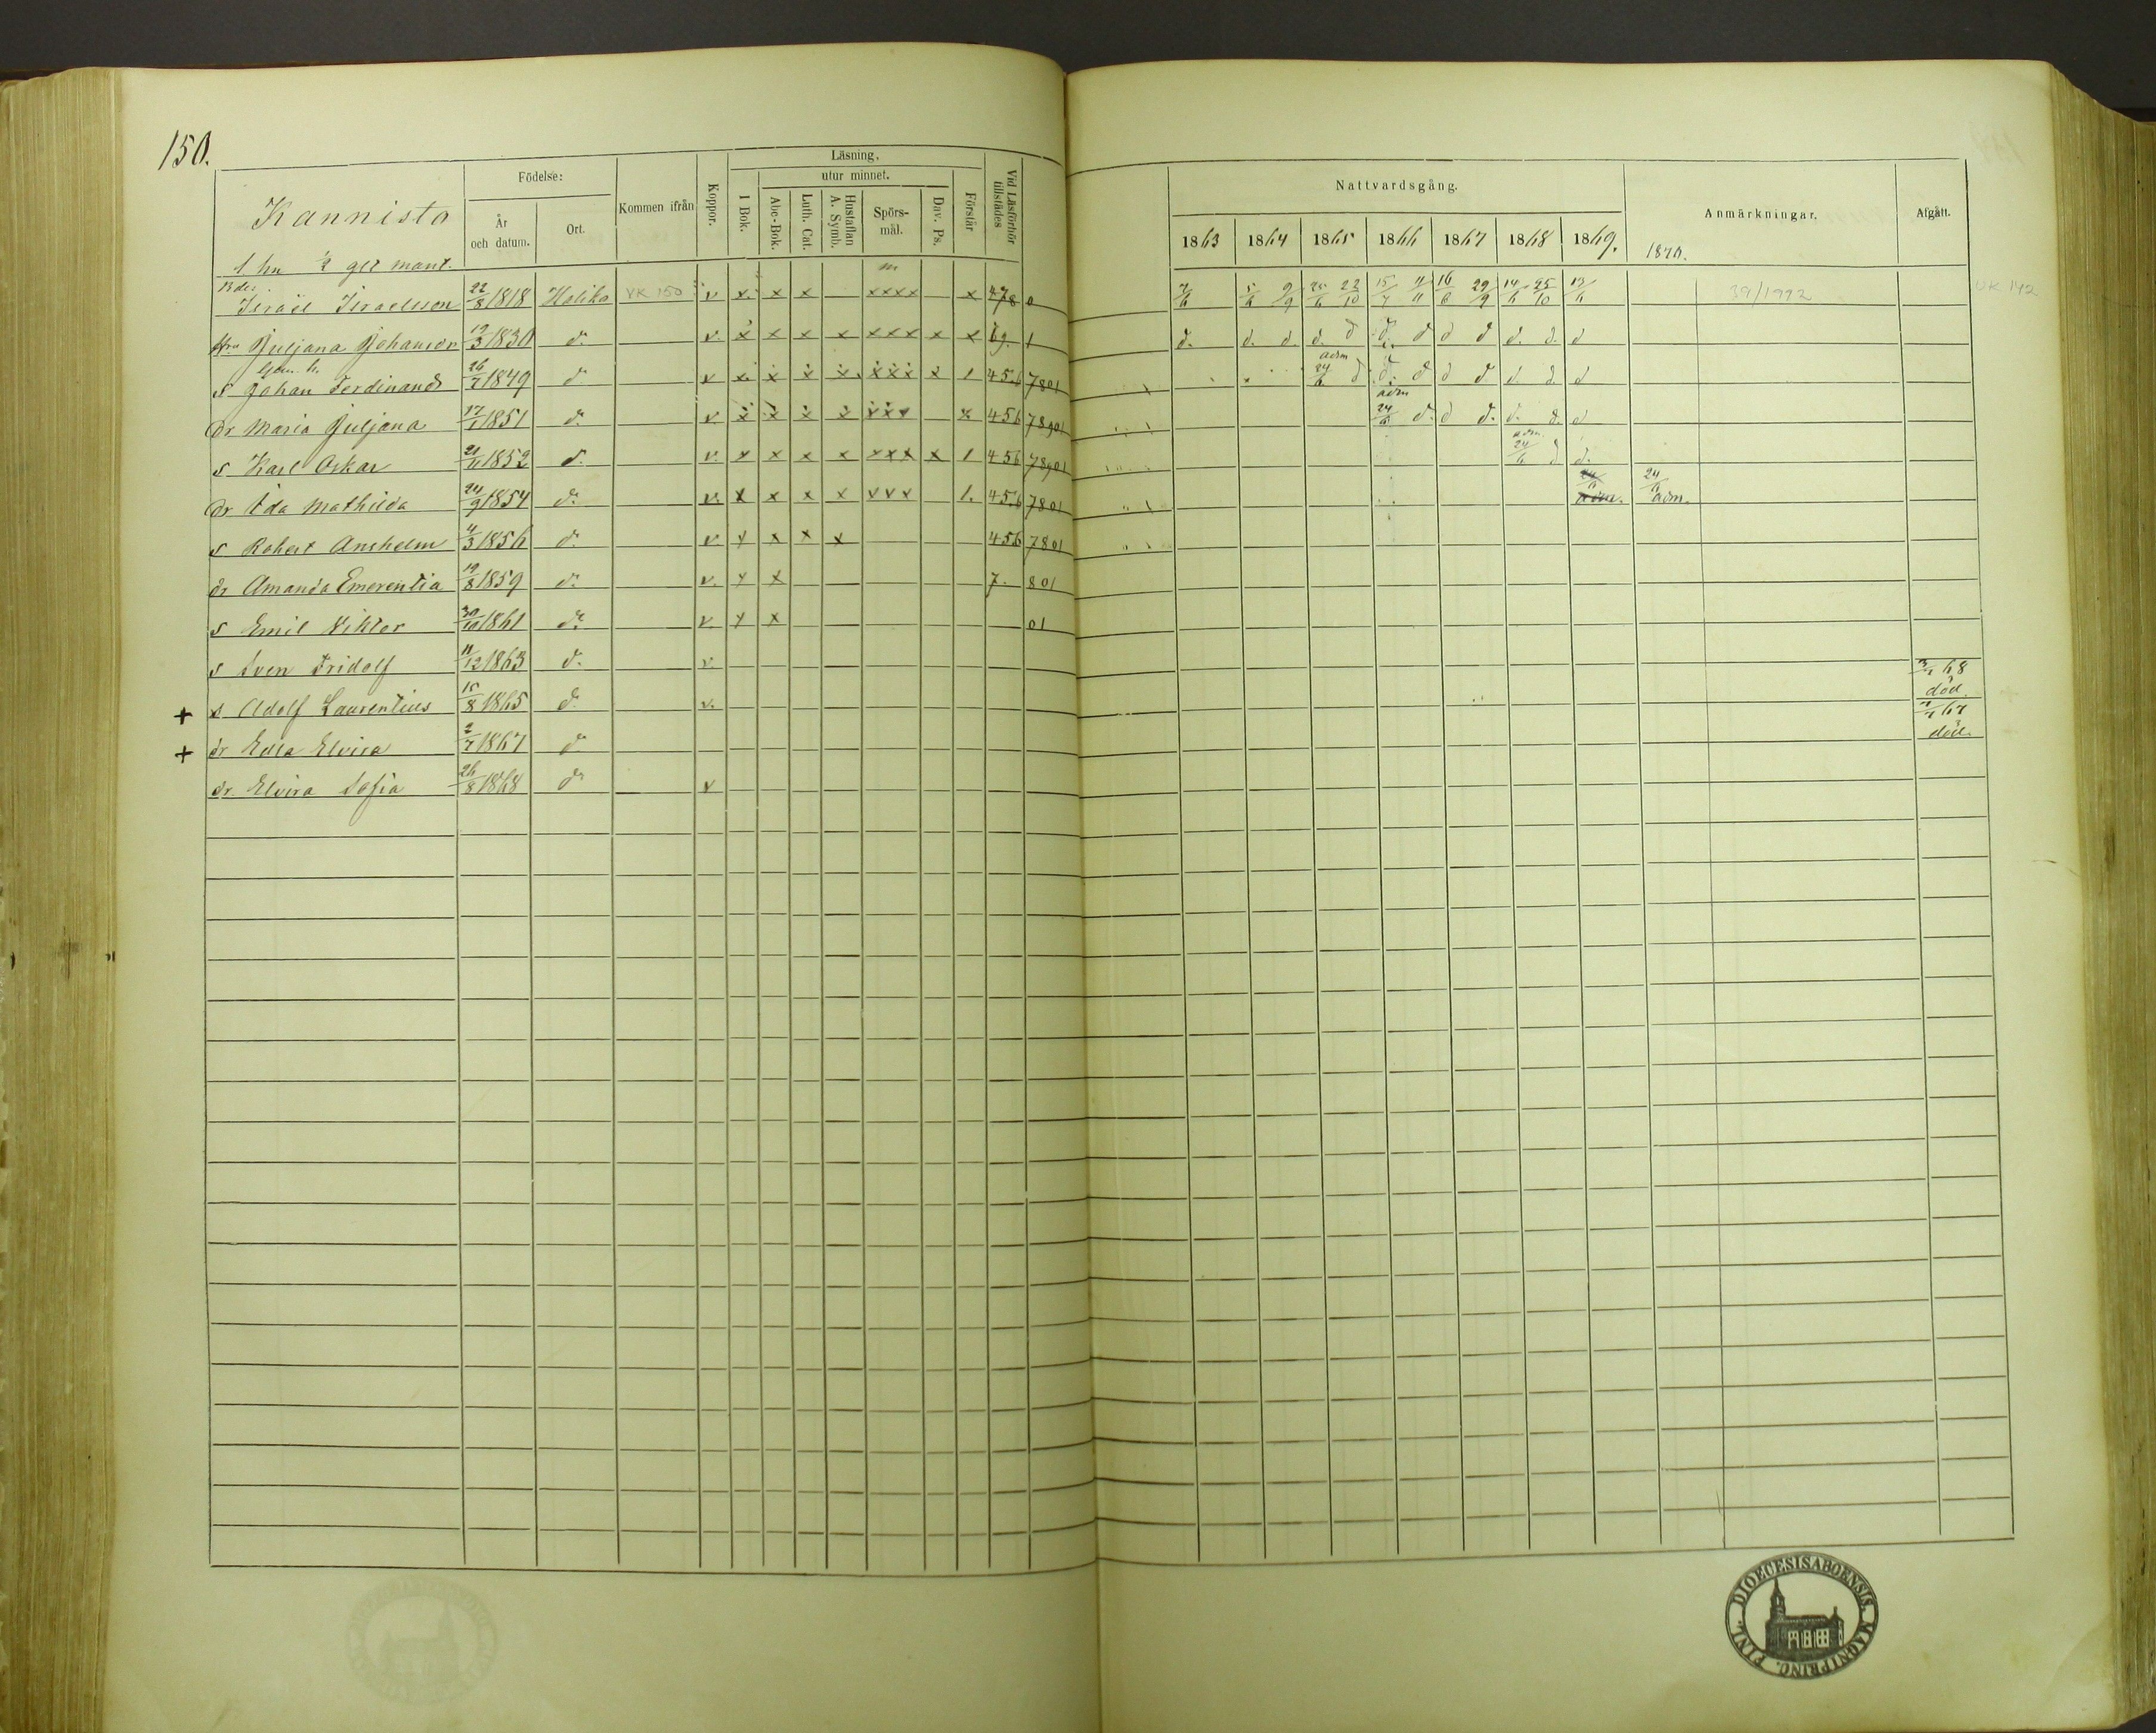 150.
Kannisto
Födelse:
År och datum.
Ort.
Kommen ifrån
Koppor.
Läsning,
utur minnet.
I Bok.
Abc-Bok.
Luth. Cat.
Hustaflan A. Symb.
Spörs-mål.
Dav. Ps.
Förstår
Vid Läsförhör tillstädes
Nattvardsgång.
1863 1864 1865 1866 1867 1868 1869. 1870.
Anmärkningar.
Afgått.
1 hu ½ gel mant.
Israel Israelsson 22/8 1818 Haliko VK 150 v x x x xxxx x 478 0 7/6 5/6 9/9 25/6 22/10 15/7 11/11 16/6 29/9 14/6 25/10 13/6 39/1992 UK 142
Hru Juljana Johansdr 19/3 1830 d:o v. x x x x xxx x x 69. 1 d. d. d. d. d d. d d d d. d. d
s Johan Ferdinand 26/7 1849 d:o v x x x x xxx x 1 456 7801 adm 24/6 d d. d d d d. d. d
dr Maria Juljana 17/1 1851 d:o v. x x x x xxx x 456 78901 adm 24/6 d. d d. d. d. d
s Karl Oskar 21/11 1852 d:o v. x x x x xxx x 1 456 78901 adm. 24/6 d d.
dr Ida Mathilda 24/9 1854 d:o v. x x x x vvv 1. 456 7801 24/6 adm. 24/6 adm.
s Robert Anshelm 4/3 1856 d:o v x x x x 456 7801
dr Amanda Emerentia 19/8 1859 d:o v. x x 7. 801
s Emil Viktor 30/10 1861 d:o v. x x 01
s Sven Fridolf 11/12 1863 d:o v.
+ s Adolf Laurentius 15/8 1865 d:o v. 68 död.
+ dr Edla Elvira 2/7 1867 d:o 67 död.
dr. Elvira Sofia 26/8 1868 d:o v
FINL. DIOECESIS ABOENSIS. MAGNI PRINC.